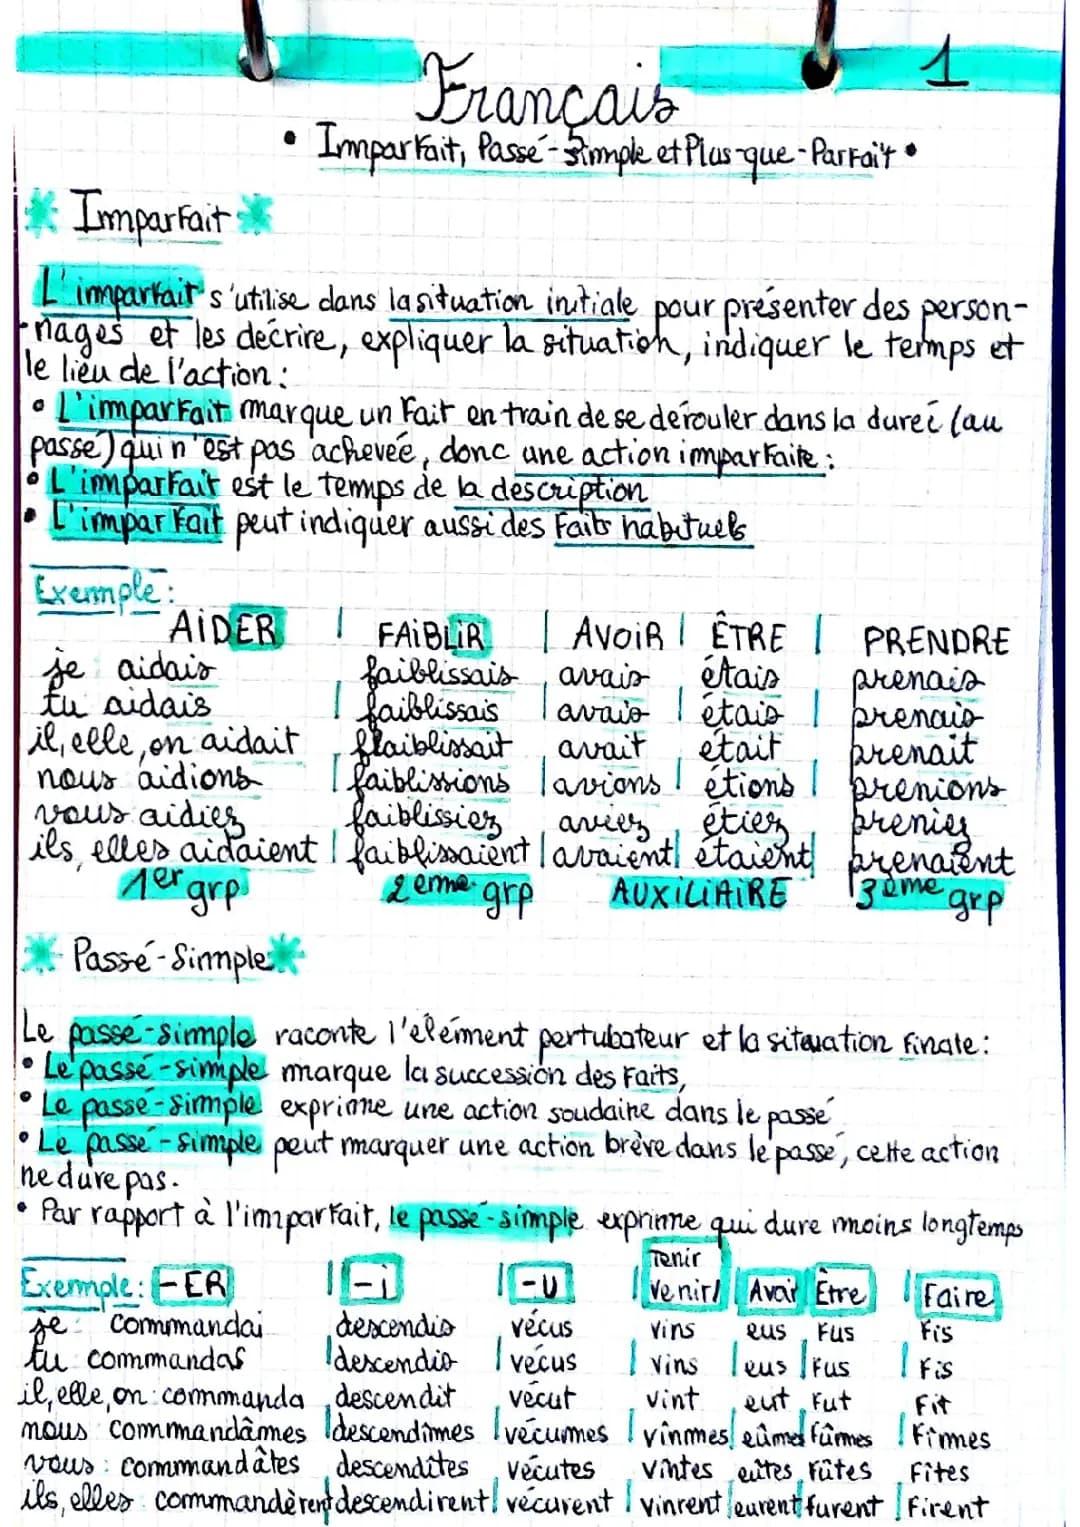 1
Français
• Imparfait, Passé-Simple et Plus-que-Parfait •
Imparfait
L'imparfait s'utilise dans la situation initiale pour présenter des person-
-nages et les décrire, expliquer la situation, indiquer le temps et
le lieu de l'action :
• L'imparfait marque un fait en train de se dérouler dans la dureé (au
passé) qui n'est pas achevéé, donc une action imparfaite :
• L'imparfait est le temps de la description
• L'imparfait peut indiquer aussi des faits habituels
Exemple :
AIDER | FAIBLIR | AVOIR | ÊTRE | PRENDRE
je aidais faiblissais avais étais prenais
tu aidais | faiblissais | avais | étais | prenais
il, elle, on aidait flaiblissait avait était prenait
nous aidions | faiblissions | avions | étions | prenions
vous aidiez faiblissiez aviez étiez preniez
ils, elles aidaient | faiblissaient | avaient | étaient | prenaient
1er grp 2eme grp AUXILIAIRE 3ème grp
Passé-Simple
Le passé-simple raconte l'élément pertubateur et la situation finale :
• Le passé-simple marque la succession des faits,
• Le passé-simple exprime une action soudaine dans le passé
• Le passé-simple peut marquer une action brève dans le passé, cette action
ne dure pas.
• Par rapport à l'imparfait, le passé-simple exprime qui dure moins longtemps
Exemple : -ER | -i | -U | Tenir Venir/ Avoir Être | Faire
je : commandai descendis vécus vins eus fus fis
tu commandas | descendis | vécus | vins | eus | fus | fis
il, elle, on : commanda descendit vécut vint eut fut fit
nous commandâmes | descendîmes | vécumes | vînmes | eûmes fûmes | fîmes
vous : commandâtes descendîtes vécutes vîntes eûtes fûtes fîtes
ils, elles commandèrent descendirent | vécurent | vinrent | eurent furent | firent